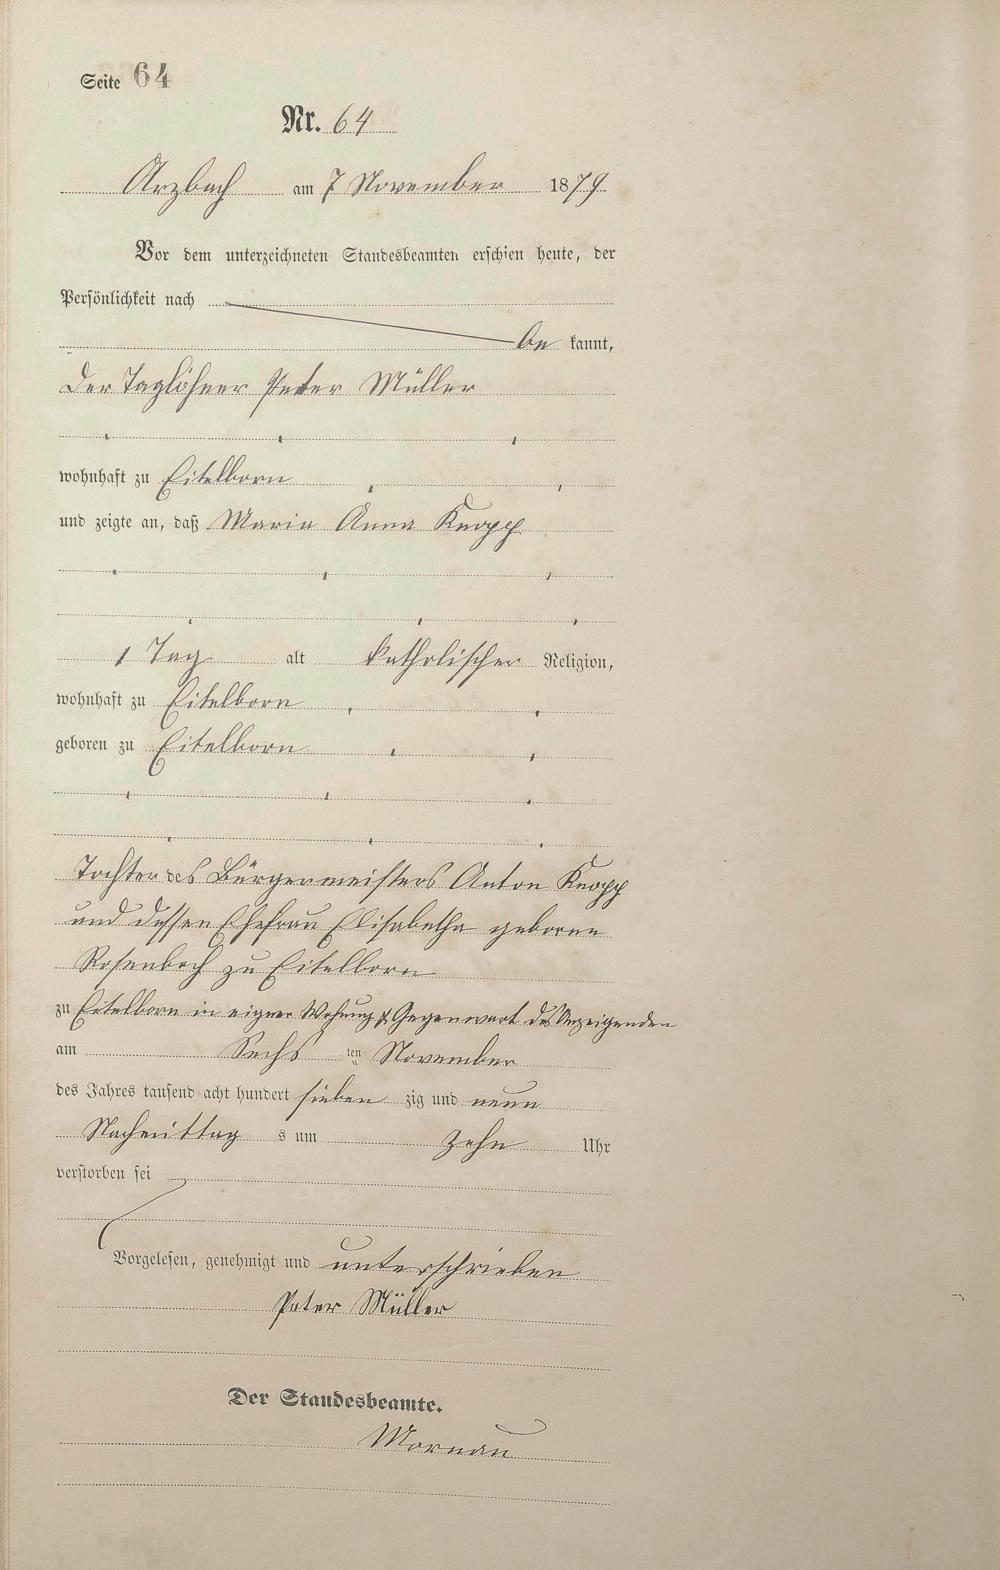 Seite 64
Nr. 64
Arzbach am 7 November 1879
Vor dem unterzeichneten Standesbeamten erschien heute, der
Persönlichkeit nach
be kannt,
der Taglöhner Peter Müller
wohnhaft zu Eitelborn
und zeigte an, daß Maria Anna Knopp
1 Tag alt katholischer Religion,
wohnhaft zu Eitelborn
geboren zu Eitelborn
Tochter des Bürgermeisters Anton Knopp
und dessen Ehefrau Elisabetha geborne
Rosenbach zu Eitelborn
zu Eitelborn in eigner Wohnung & Gegenwart des Anzeigenden
am Sechs ten November
des Jahres tausend acht hundert sieben zig und neun
Nachmittag s um Zehn Uhr
verstorben sei
Vorgelesen, genehmigt und unterschrieben
Peter Müller
Der Standesbeamte.
Mornau